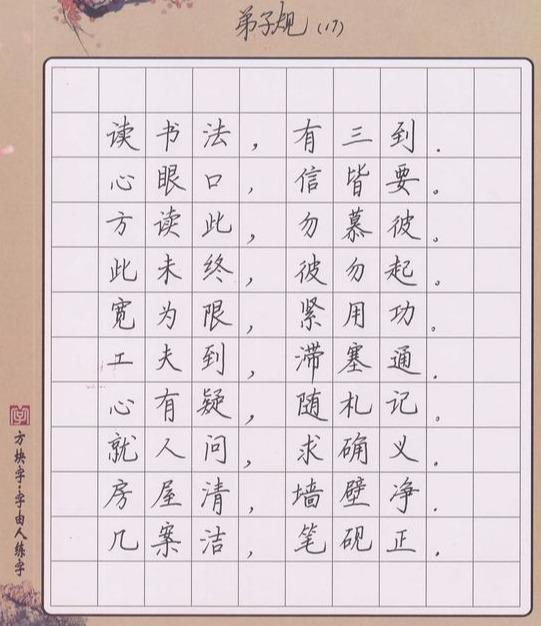 弟子规(17)
读书法，有三到.
心眼口，信皆要。
方读此，勿慕彼。
此未终，彼勿起。
宽为限，紧用功。
工夫到，滞塞通.
心有疑，随札记。
就人问，求确义.
房屋清，墙壁净.
几案洁，笔砚正.
方块字·字由人练字